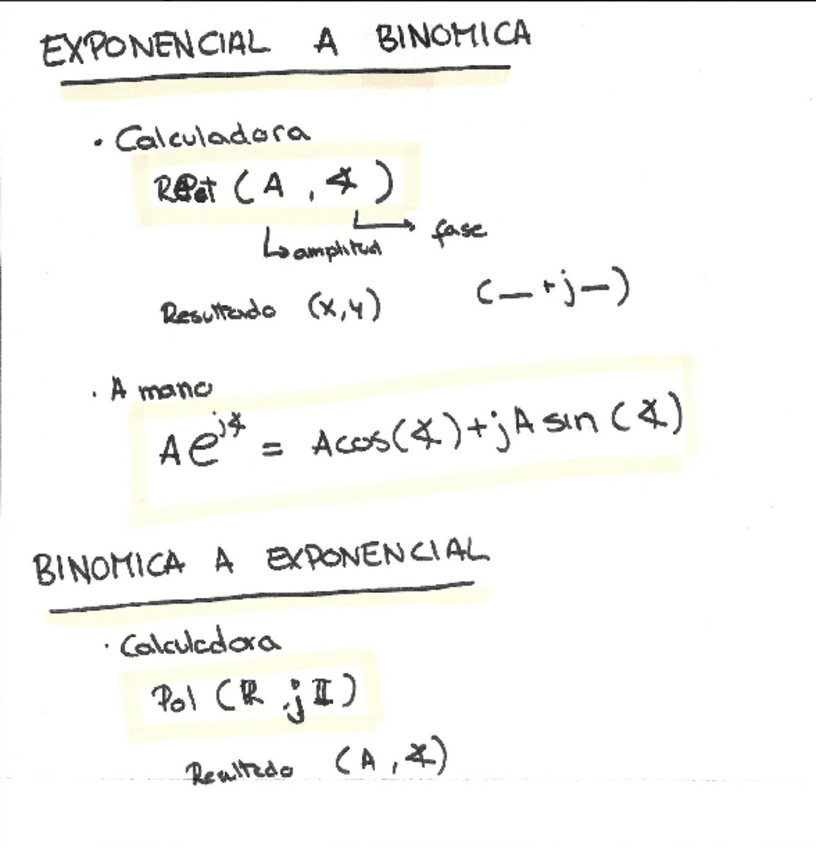 EXPONENCIAL A BINOMICA
· Calculadora
Rect (A, ∡)
↳ amplitud
→ fase
Resultado (x,y) (_ + j _)
· A mano
A e^{j∡} = A cos(∡) + j A sin (∡)
BINOMICA A EXPONENCIAL
· Calculadora
Pol (R, jI)
Resultado (A, ∡)